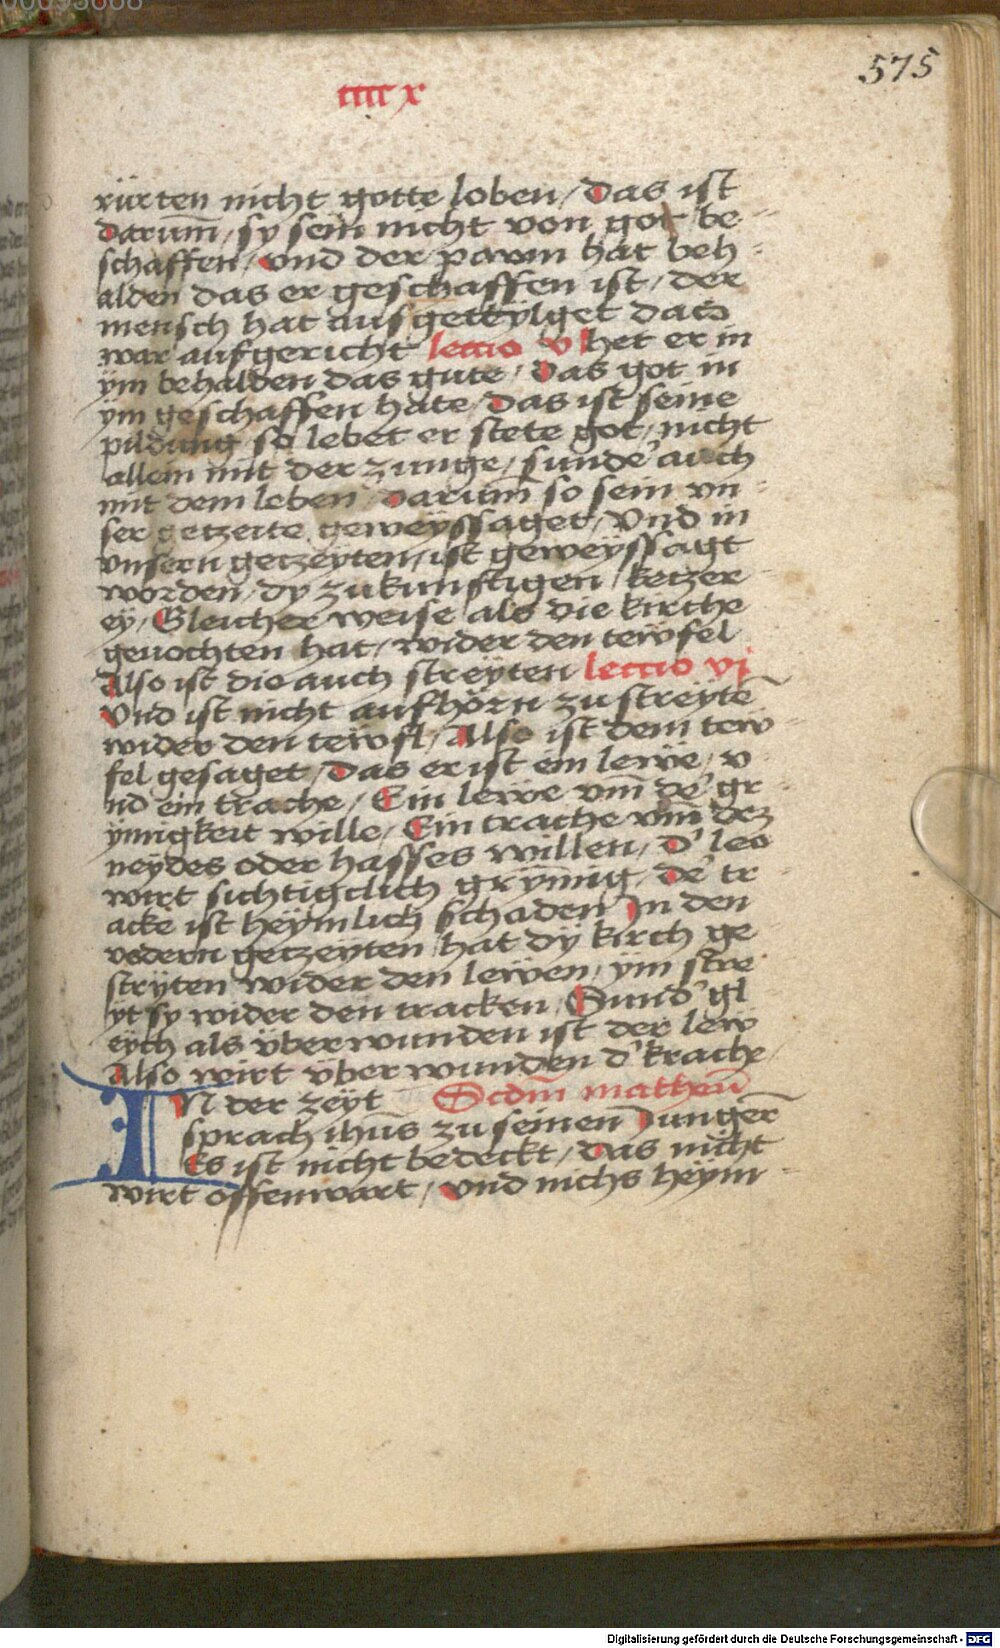 575
cccc x
rürten nicht gotte loben / Das ist
Darum̄ / sy sein nicht von got be-
schaffen / Vnd der pawm hat beh-
alden das er geschaffen ist / der
mensch hat aufgeteylget dato
war aufgericht leccio v het er in
ÿm behalden das gute / Das got in
ÿm geschaffen hate / Das ist seine
pildung so lebet er stete got / nicht
allein mit der zunge / sunde' auch
mit dem leben / Darum̄ so sein vn-
ser getzeite geweÿssaget / Vnd in
vnsern getzeÿten / ist geweÿssagt
worden / dy zukunftigen / ketzer
eÿ / Gleicher weise als die kirche
geuochten hat / wider den tewfel
Also ist die auch streÿten leccio vi
Vnd ist nicht aufhörn zu streÿtē
wider den tewfl / Also ist dem tew-
fel gesaget / Das er ist ein lewe / v-
nd ein trache / Ein lewe vm̄ de' gr-
ÿnnigkeit wille / Ein trache vm̄ dez
neÿdes oder hasses willen / D' leo
wirt sichtigclich grÿnnig / De' tr-
acke ist heÿmlich schaden In den
vodern getzeÿten hat dÿ kirch ge-
strÿten wider den lewen / ÿm stre-
ÿt sy wider den tracken / Sund' gl-
eÿch als vberwunden ist der lew
Also wirt vberwunden d' krache /
IN der zeÿt Scdm̄ matheū
sprach ihūs zu seinen Jungern̄
Es ist nicht bedeckt / Das nicht
wirt offenwart / Vnd nichs heÿm-
Digitalisierung gefördert durch die Deutsche Forschungsgemeinschaft - DFG